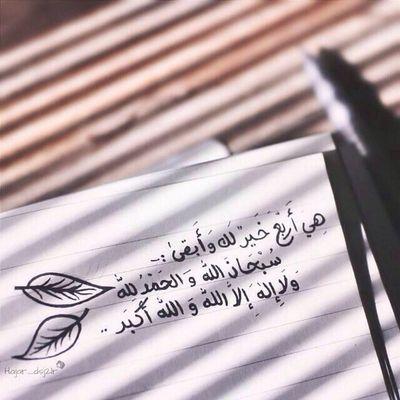 هِي أَرَبْعَ خَيرٌ لَك وَ أَبقىٰ :-
سُبْحَانَ اللهَ وَ الحَمْدُ للهِ
وَلَا إِلٰهَ إِلاَّ اللهُ وَ اللهَ أَكْبَر ..